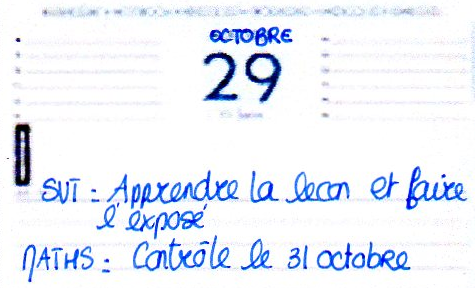 OCTOBRE
29
SVT : Apprendre la lecon et faire
l'exposé
MATHS : Contrôle le 31 octobre